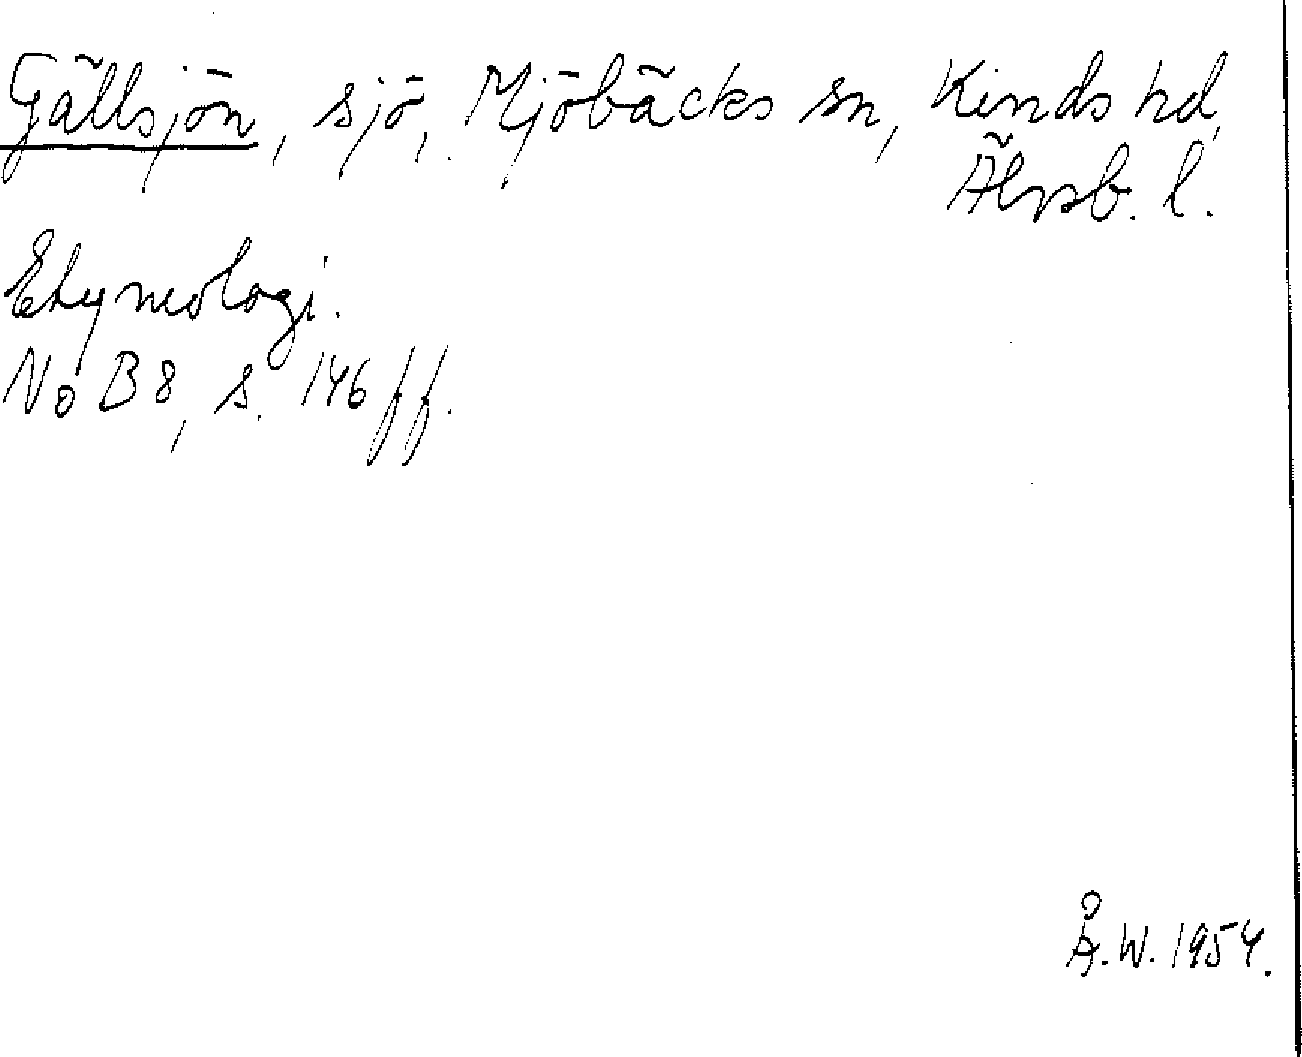 Gällsjön, sjö, Mjöbäcks sn, Kinds hd,
Älvsb. l.
Etymologi.
NoB 8, s. 146 ff.
Å.W. 1954.